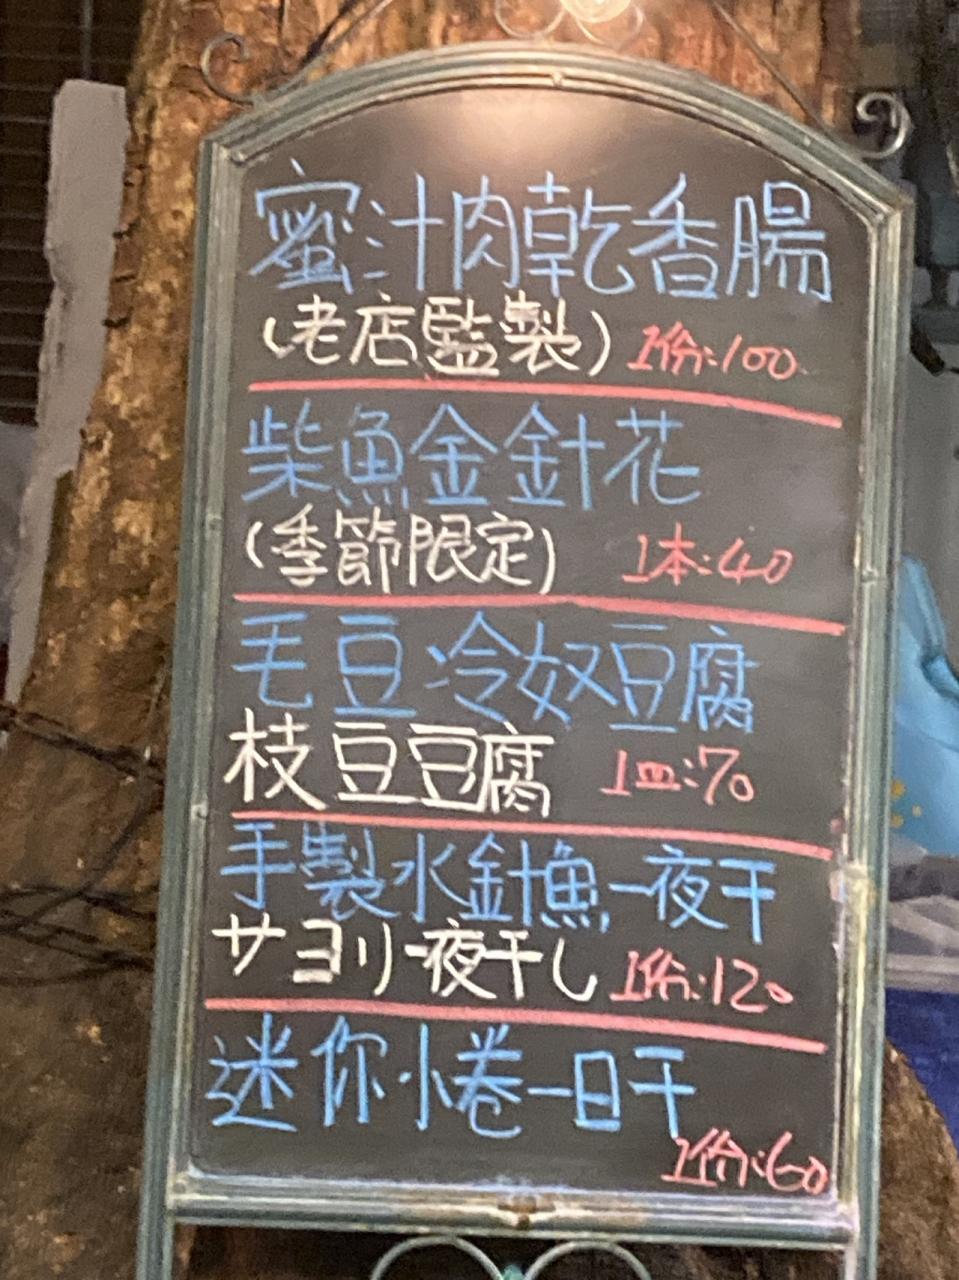 蜜汁肉乾香腸
(老店監製) 1份:100
柴魚金針花
(季節限定) 1本:40
毛豆冷奴豆腐
枝豆豆腐 1皿:70
手製水針魚一夜干
サヨリ一夜干し 1份:120
迷你小卷一日干
1份:60